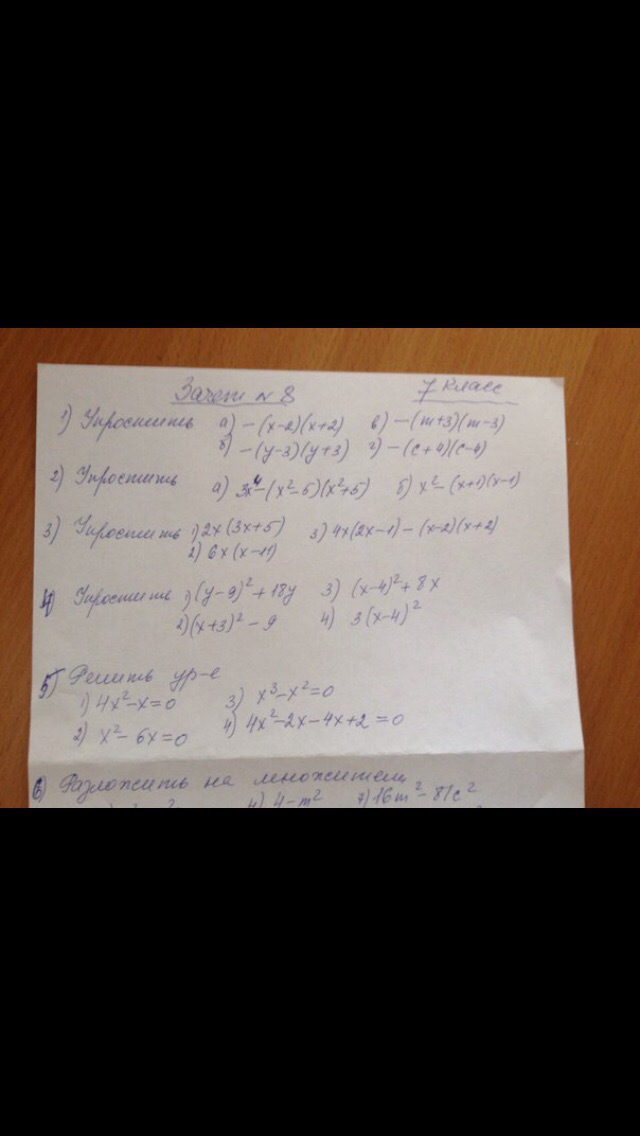 Зачет № 8 7 класс
1) Упростить а) -(x-2)(x+2) в) -(m+3)(m-3)
б) -(y-3)(y+3) г) -(c+4)(c-4)
2) Упростить а) 3x⁴-(x²-5)(x²+5) б) x²-(x+1)(x-1)
3) Упростить 1) 2x(3x+5) 3) 4x(2x-1)-(x-2)(x+2)
2) 6x(x-11)
4) Упростить 1) (y-9)²+18y 3) (x-4)²+8x
2) (x+3)²-9 4) 3(x-4)²
5) Решить ур-е
1) 4x²-x=0 3) x³-x²=0
2) x²-6x=0 4) 4x²-2x-4x+2=0
6) Разложить на множители
4) 4-m² 7) 16m²-81c²